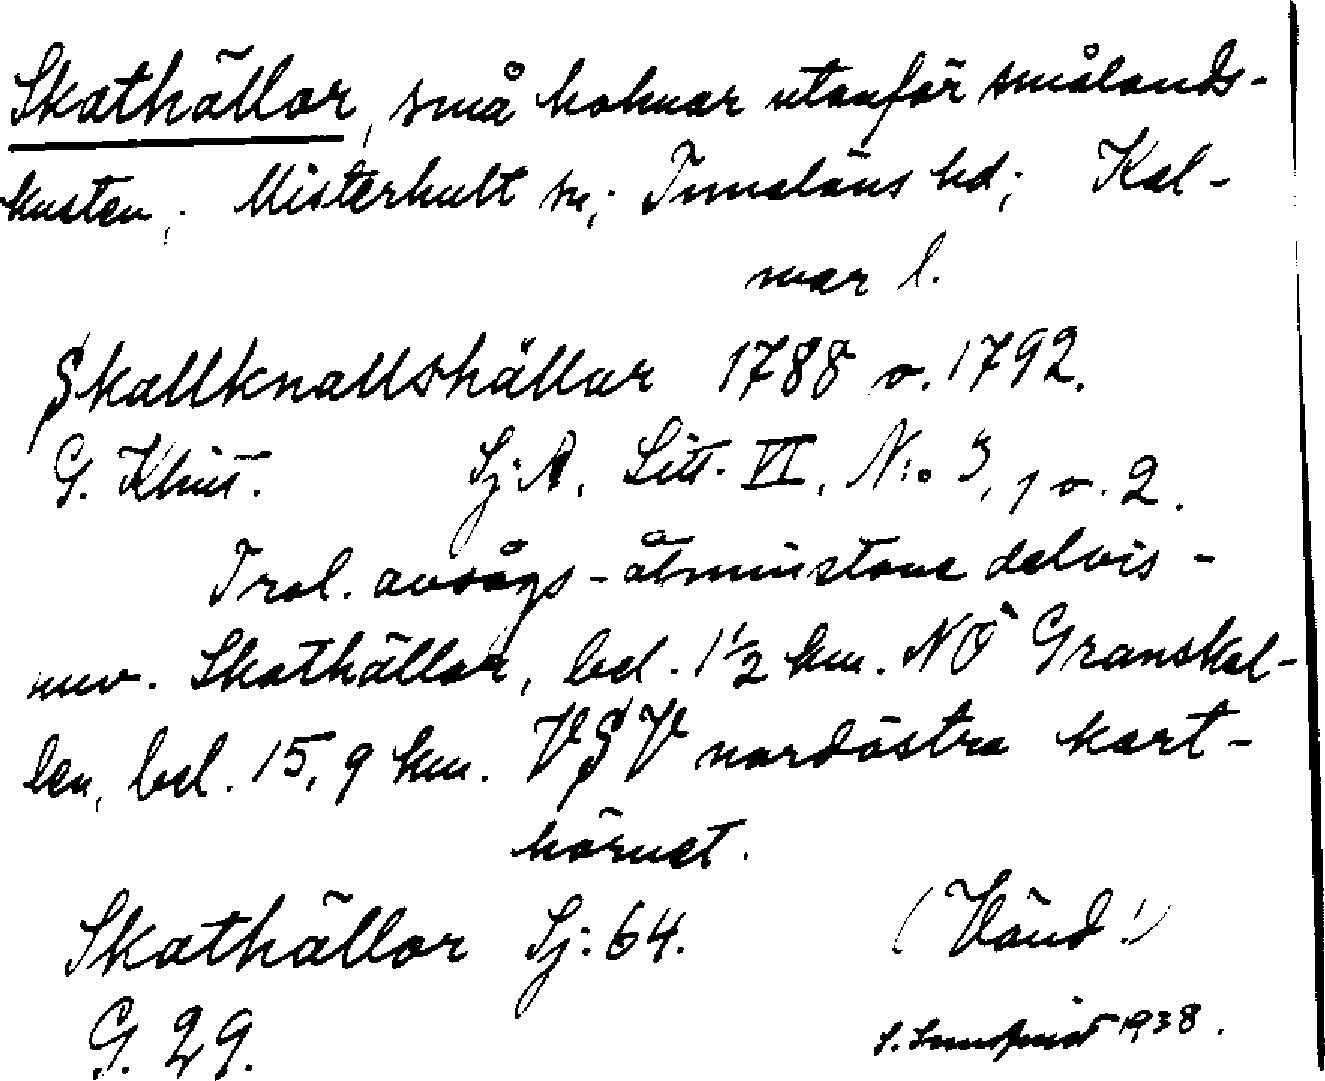 Skathällor, små holmar utanför smålands-
kusten; Misterhult sn; Tunaläns hd; Kal-
mar l.
Skallknallshällar 1788 o. 1792.
G. Klint. Sj:A. Litt. VI, N:o 3, 1 o. 2.
Trol. avsågs - åtminstone delvis -
nuv. Skathällor, bel. 1 1/2 km. NÖ Granskal-
len, bel. 15,9 km. VSV nordöstra kart-
hörnet.
Skathällor Sj: 64. (Vänd!)
G. 29. 1938.